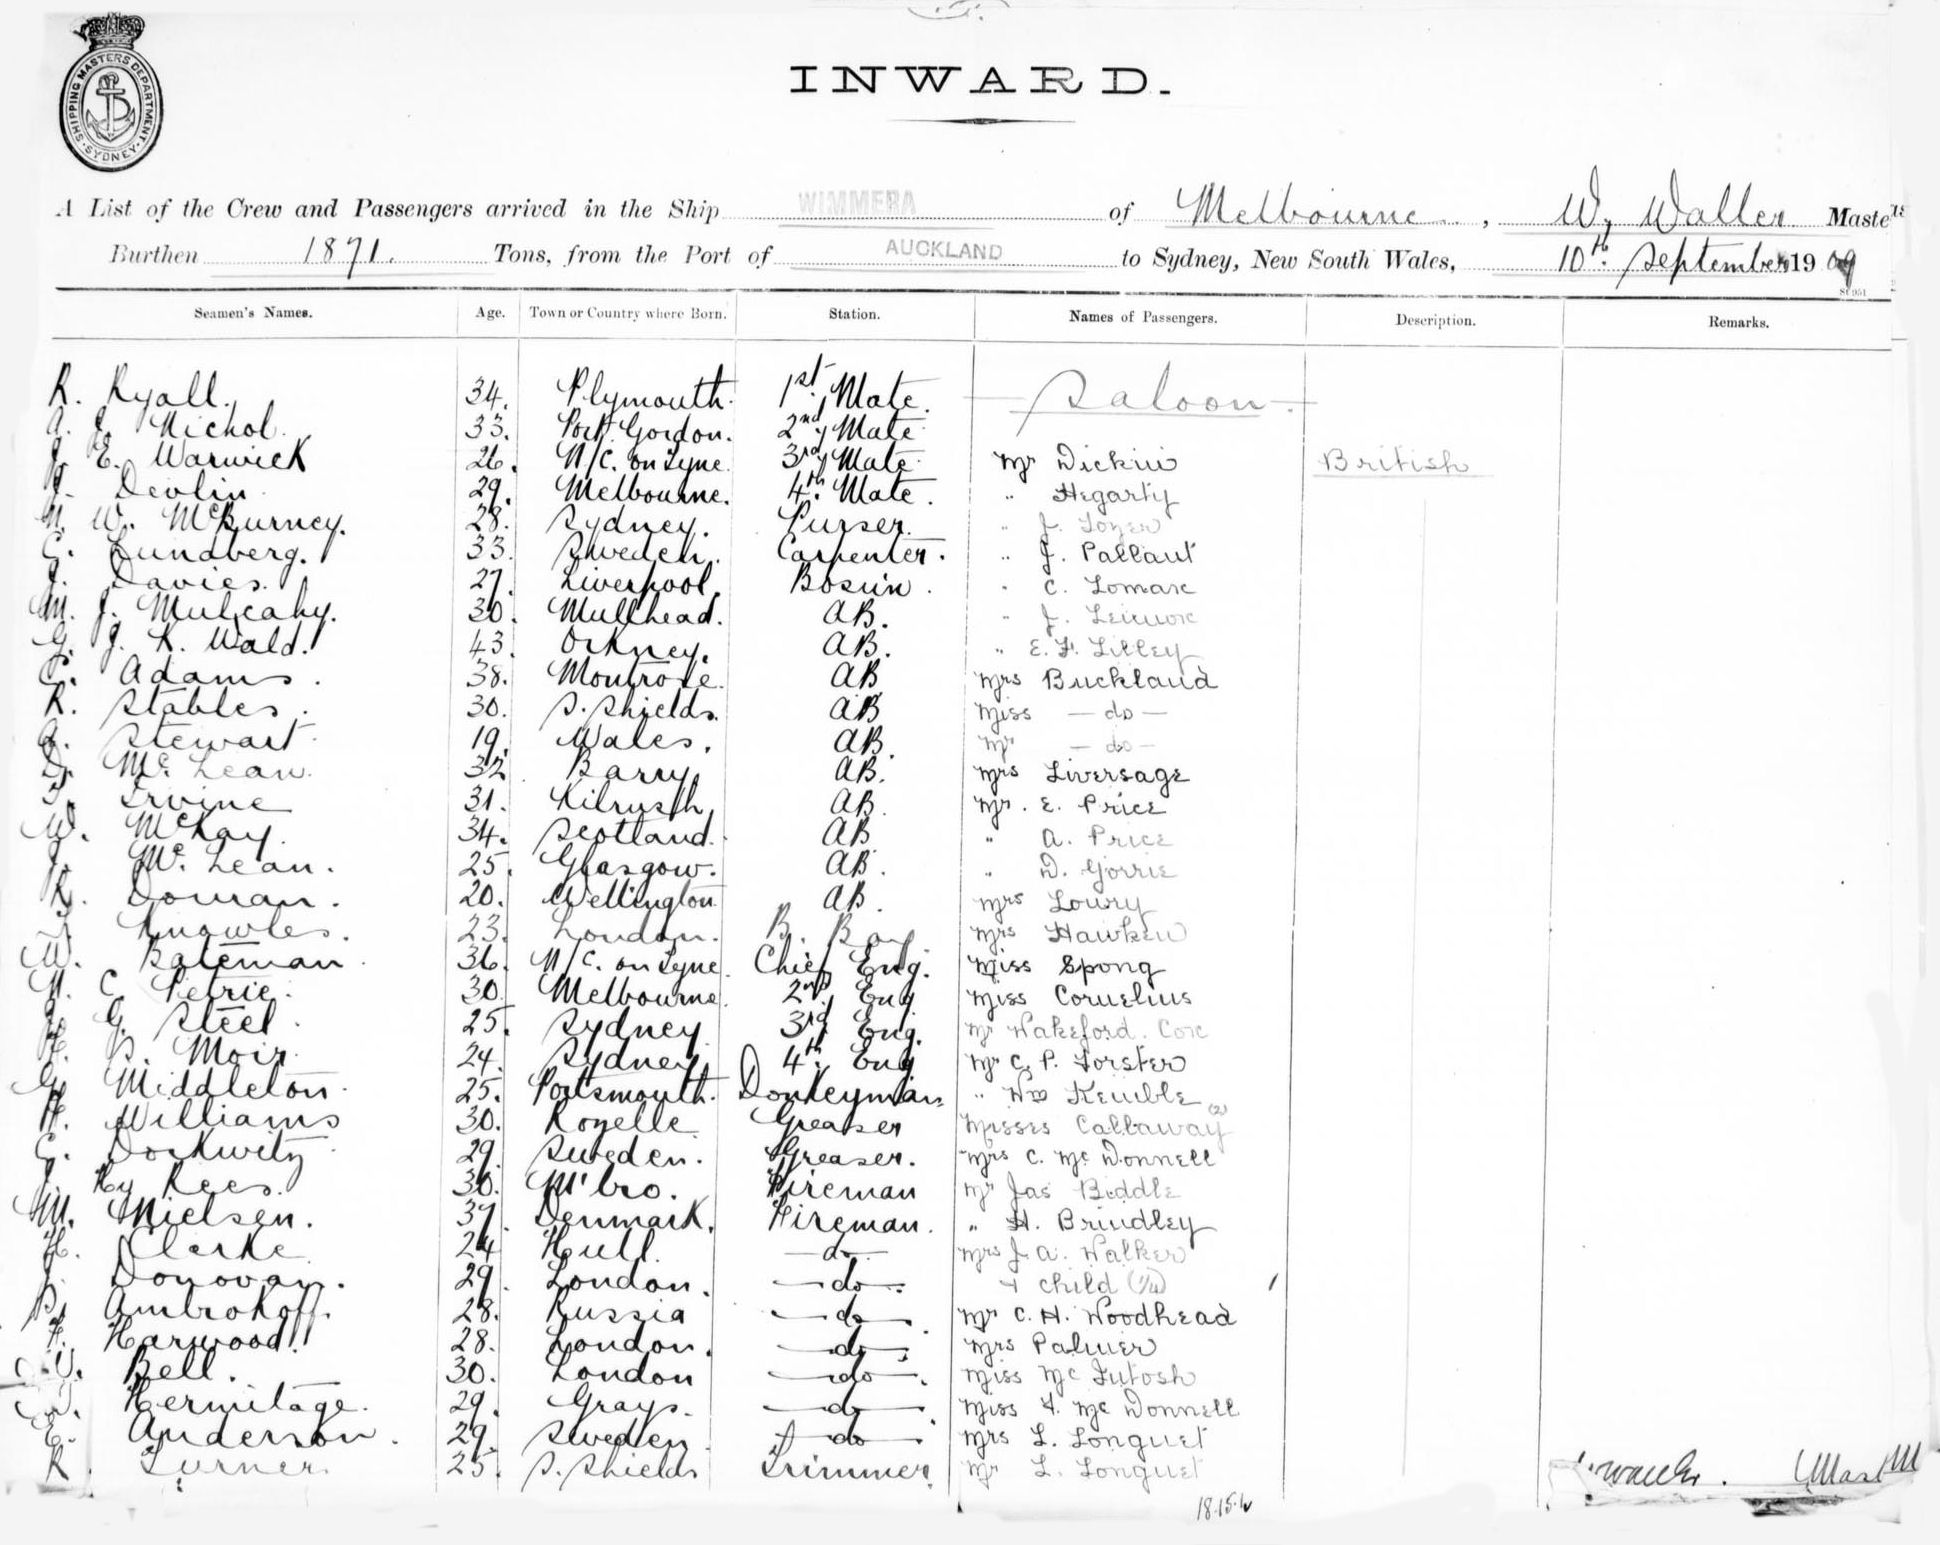 SHIPPING MASTERS DEPARTMENT
SYDNEY
INWARD.
A List of the Crew and Passengers arrived in the Ship WIMMERA of Melbourne, W, Waller Master
Burthen 1871. Tons, from the Port of AUCKLAND to Sydney, New South Wales, 10th. September 1909
Seamen's Names. Age. Town or Country where Born. Station. Names of Passengers. Description. Remarks.
R. Ryall. 34. Plymouth. 1st Mate. Saloon.
A. J. Nichol. 33. Port Gordon. 2nd Mate
J. E. Warwick 26. N/C. on Tyne. 3rd Mate Mr Dickin British
J. Devlin 29. Melbourne. 4th. Mate. " Hegarty
N. W. McBurney. 28. Sydney. Purser. " J.
C. Lundberg. 33. Sweden. Carpenter. " J. Pallant
J. Davies. 27. Liverpool. Bosun. " C. Lomax
M. J. Mulcahy. 30. Mullhead. AB. " J.
G. J. K. Wald. 43. Orkney. AB. " E. F. Lilley
C. Adams. 38. Montrose. AB Mrs Buckland
R. Stables. 30. S. Shields. AB Miss — do —
A. Stewart. 19. Wales. AB. Mr — do —
D. McLean. 32. Barry. AB. Mrs Liversage
Irvine 31. Kilrush AB. Mr. E. Price
W. McKay. 34. Scotland. AB " A. Price
J. McLean. 25. Glasgow. AB. " D. Gorrie
R. Doman. 20. Wellington AB. Mrs Lowry
Knowles. 23. London. B. Boy. Mrs Hawken
W. Bateman. 36. N/C. on Tyne. Chief Eng. Miss Spong
N. C. Petrie. 30. Melbourne. 2nd Eng Miss Cornelius
G. Steel. 25. Sydney 3rd Eng. Mr Wakeford. Cox
H. S. Moir. 24. Sydney 4th. Eng Mr C. P. Forster
G. Middleton. 25. Portsmouth. Donkeyman " Wm Kemble
H. Williams 30. Rozelle Greaser Misses Callaway (2)
C. Dorkwitz 29. Sweden. Greaser. Mrs C. McDonnell
J. Hy Rees. 30. M'bro. Fireman Mr Jas Biddle
M. Nielsen. 37. Denmark. Fireman. " H. Brindley
H. Clarke 24 Hull. — do — Mrs J. A. Walker
J. Donovan. 29. London. — do — + child
P. Ambrokoff. 28. Russia — do — Mr C. H. Woodhead
F. Harwood. 28. London. — do — Mrs Palmer
W. Bell. 30. London — do — Miss McIntosh
Hermitage. 29. Grays. — do — Miss F. McDonnell
E. Anderson. 29. Sweden. — do — Mrs L. Longuet
R. Turner. 25. S. Shields Trimmer. Mr L. Longuet